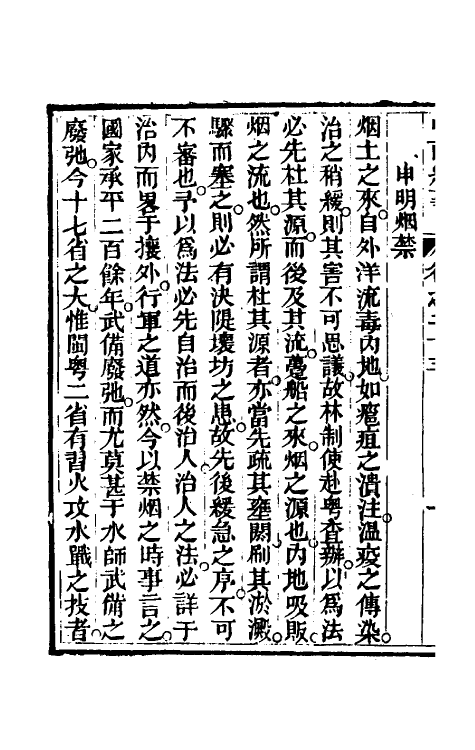 申明烟禁
烟土之來自外洋流毒內地如瘡疽之潰注溫疫之傳染
治之稍緩則其害不可思議故林制使赴粵查辦以爲法
必先杜其源而後及其流躉船之來烟之源也內地吸販
烟之流也然所謂杜其源者亦當先疏其壅閼刷其淤澱
驟而壅之則必有決隄壞坊之患故先後緩急之序不可
不審也予以爲法必先自治而後治人治人之法必詳于
治內而畧于攘外行軍之道亦然今以禁烟之時事言之
國家承平二百餘年武備廢弛而尤莫甚于水師武備之
廢弛今十七省之大惟閩粵二省有習火攻水戰之技者